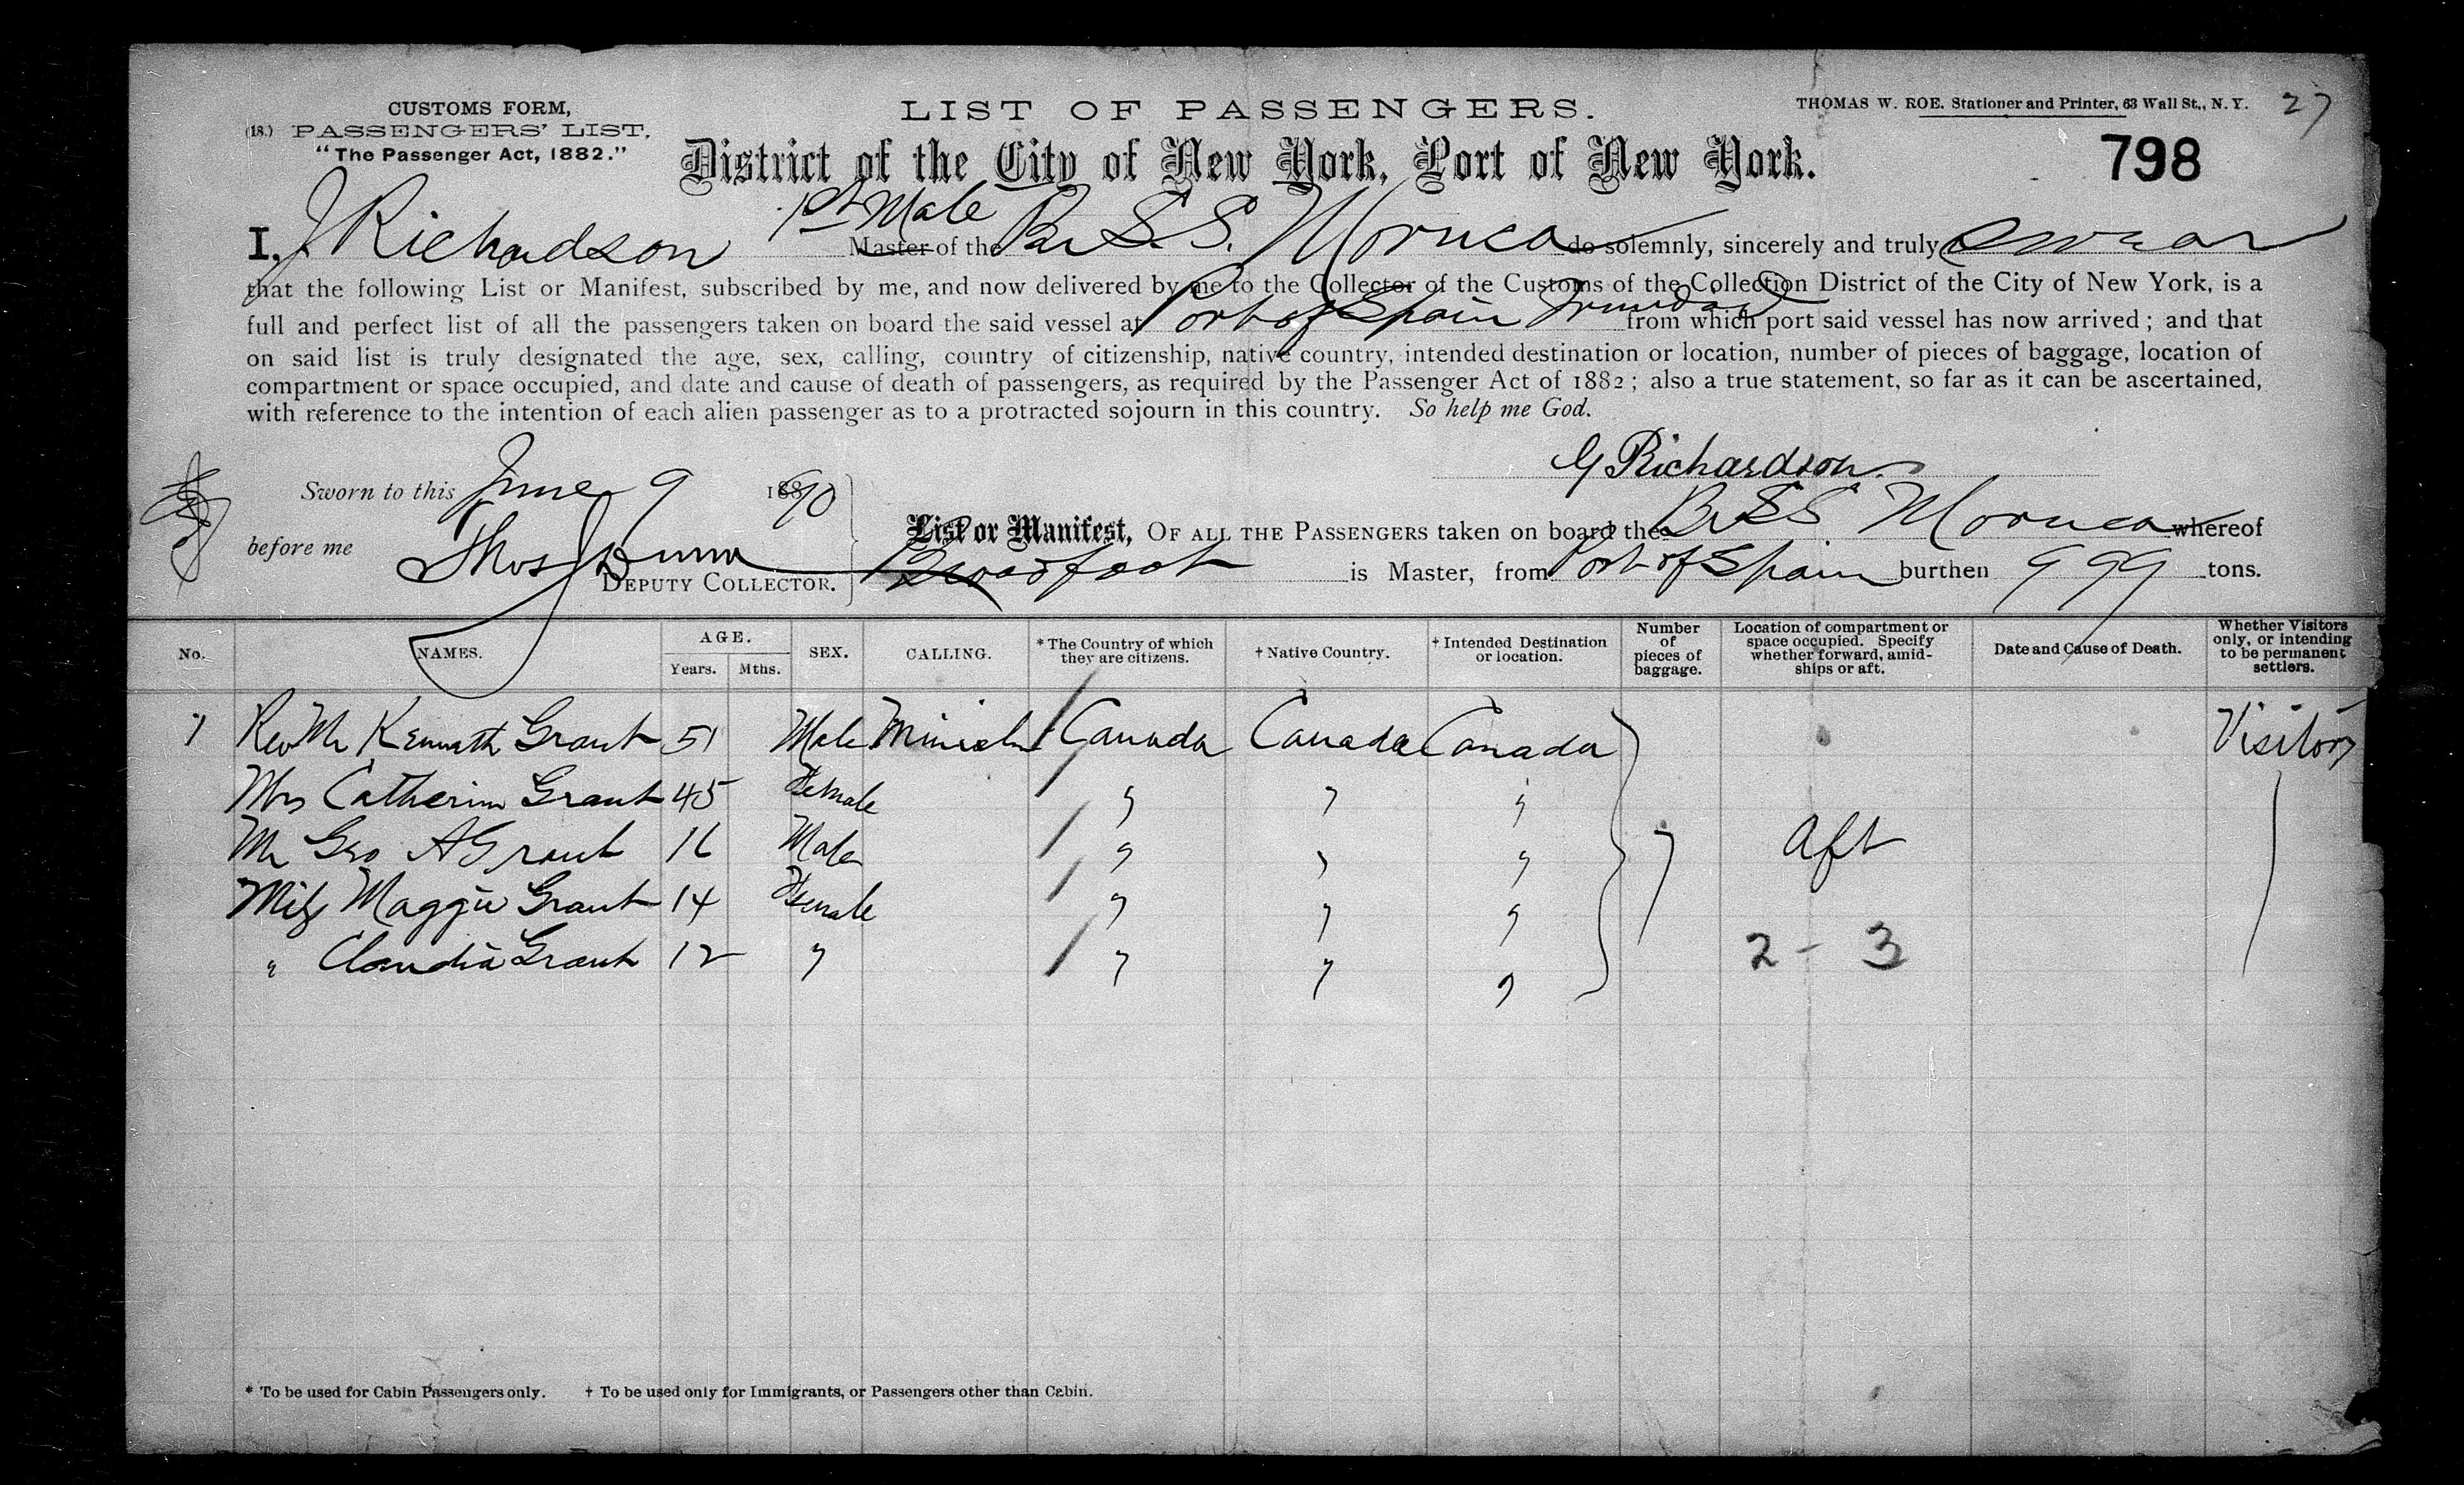 CUSTOMS FORM,
(18.) PASSENGERS' LIST,
"The Passenger Act, 1882."
LIST OF PASSENGERS.
THOMAS W. ROE. Stationer and Printer, 63 Wall St., N. Y. 27
District of the City of New York, Port of New York.
798
1st Mate
I, J Richardson Master of the Br S.S. Moruca do solemnly, sincerely and truly swear
that the following List or Manifest, subscribed by me, and now delivered by me to the Collector of the Customs of the Collection District of the City of New York, is a
full and perfect list of all the passengers taken on board the said vessel at Port of Spain Trinidad from which port said vessel has now arrived; and that
on said list is truly designated the age, sex, calling, country of citizenship, native country, intended destination or location, number of pieces of baggage, location of
compartment or space occupied, and date and cause of death of passengers, as required by the Passenger Act of 1882; also a true statement, so far as it can be ascertained,
with reference to the intention of each alien passenger as to a protracted sojourn in this country. So help me God.
G Richardson
Sworn to this June 9 1890
before me Thos J Dunn
DEPUTY COLLECTOR.
List or Manifest, OF ALL THE PASSENGERS taken on board the Br SS Moruca whereof
Broadfoot is Master, from Port of Spain burthen 999 tons.
No. NAMES. AGE. Years. Mths. SEX. CALLING. * The Country of which they are citizens. † Native Country. † Intended Destination or location. Number of pieces of baggage. Location of compartment or space occupied. Specify whether forward, amid-ships or aft. Date and Cause of Death. Whether Visitors only, or intending to be permanent settlers.
1 Rev Mr Kenneth Grant 51 Male Minister Canada Canada Canada Visitors
Mrs Catherine Grant 45 Female " " "
Mr Geo A Grant 16 Male " " " 7 Aft
Miss Maggie Grant 14 Female " " "
" Claudia Grant 12 " " " " 2 - 3
* To be used for Cabin Passengers only. † To be used only for Immigrants, or Passengers other than Cabin.